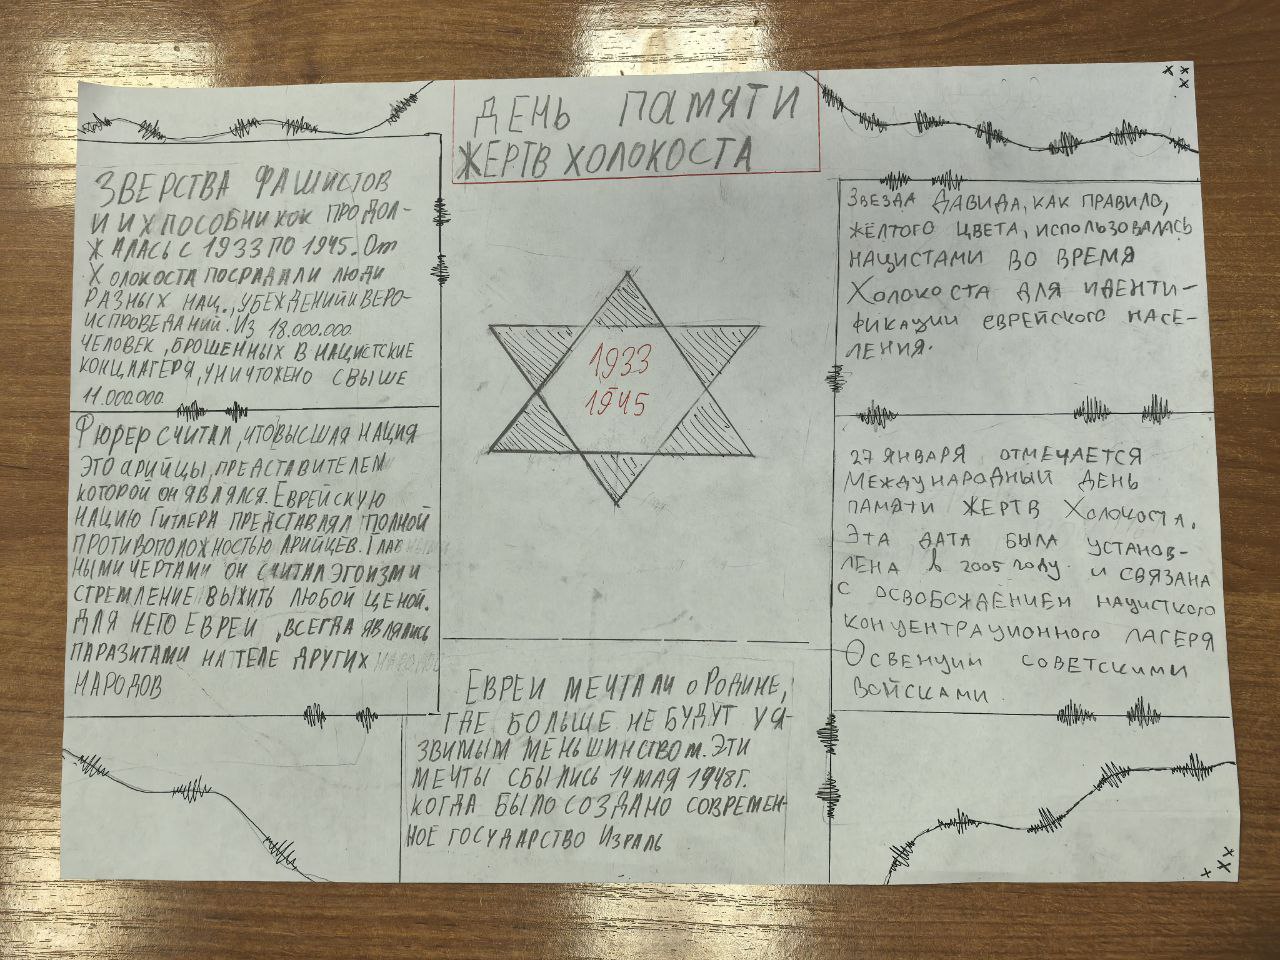 ДЕНЬ ПАМЯТИ
ЖЕРТВ ХОЛОКОСТА
ЗВЕРСТВА ФАШИСТОВ
И ИХ ПОСОБНИКОК ПРОДОЛ-
ЖАЛАСЬ С 1933 ПО 1945. От
Холокоста посрадали люди
РАЗНЫХ НАЦ., УБЕЖДЕНИЙ И ВЕРО-
ИСПРОВЕДАНИЙ. Из 18.000.000
ЧЕЛОВЕК, БРОШЕННЫХ В НАЦИСТСКИЕ
КОНЦЛАГЕРЯ, УНИЧТОЖЕНО СВЫШЕ
11.000.000
ФЮРЕР СЧИТАЛ, ЧТО ВЫСШАЯ НАЦИЯ
ЭТО АРИЙЦЫ, ПРЕДСТАВИТЕЛЕМ
КОТОРОЙ ОН ЯВЛЯЛСЯ. ЕВРЕЙСКУЮ
НАЦИЮ ГИТЛЕРА ПРЕДСТАВЛЯЛ ПОЛНОЙ
ПРОТИВОПОЛОЖНОСТЬЮ АРИЙЦЕВ. ГЛАВ
НЫМИ ЧЕРТАМИ ОН СЧИТАЛ ЭГОИЗМ И
СТРЕМЛЕНИЕ ВЫЖИТЬ ЛЮБОЙ ЦЕНОЙ.
ДЛЯ НЕГО ЕВРЕИ, ВСЕГДА ЯВЛЯЛИСЬ
ПАРАЗИТАМИ НА ТЕЛЕ ДРУГИХ
НАРОДОВ
1933
1945
ЕВРЕИ МЕЧТАЛИ О РОДИНЕ,
ГДЕ БОЛЬШЕ НЕ БУДУТ УЯ-
ЗВИМЫМ МЕНЬШИНСТВОМ. ЭТИ
МЕЧТЫ СБЫЛИСЬ 14 МАЯ 1948Г.
КОГДА БЫЛО СОЗДАНО СОВРЕМЕН-
НОЕ ГОСУДАРСТВО ИЗРАЛЬ
ЗВЕЗДА ДАВИДА, КАК ПРАВИЛО,
ЖЁЛТОГО ЦВЕТА, ИСПОЛЬЗОВАЛАСЬ
НАЦИСТАМИ ВО ВРЕМЯ
ХОЛОКОСТА ДЛЯ ИДЕНТИ-
ФИКАЦИИ ЕВРЕЙСКОГО НАСЕ-
ЛЕНИЯ.
27 ЯНВАРЯ ОТМЕЧАЕТСЯ
МЕЖДУНАРОДНЫЙ ДЕНЬ
ПАМЯТИ ЖЕРТВ ХОЛОКОСТА.
ЭТА ДАТА БЫЛА УСТАНОВ-
ЛЕНА В 2005 ГОДУ И СВЯЗАНА
С ОСВОБОЖДЕНИЕМ НАЦИСТКОГО
КОНЦЕНТРАЦИОННОГО ЛАГЕРЯ
ОСВЕНЦИМ СОВЕТСКИМИ
ВОЙСКАМИ.